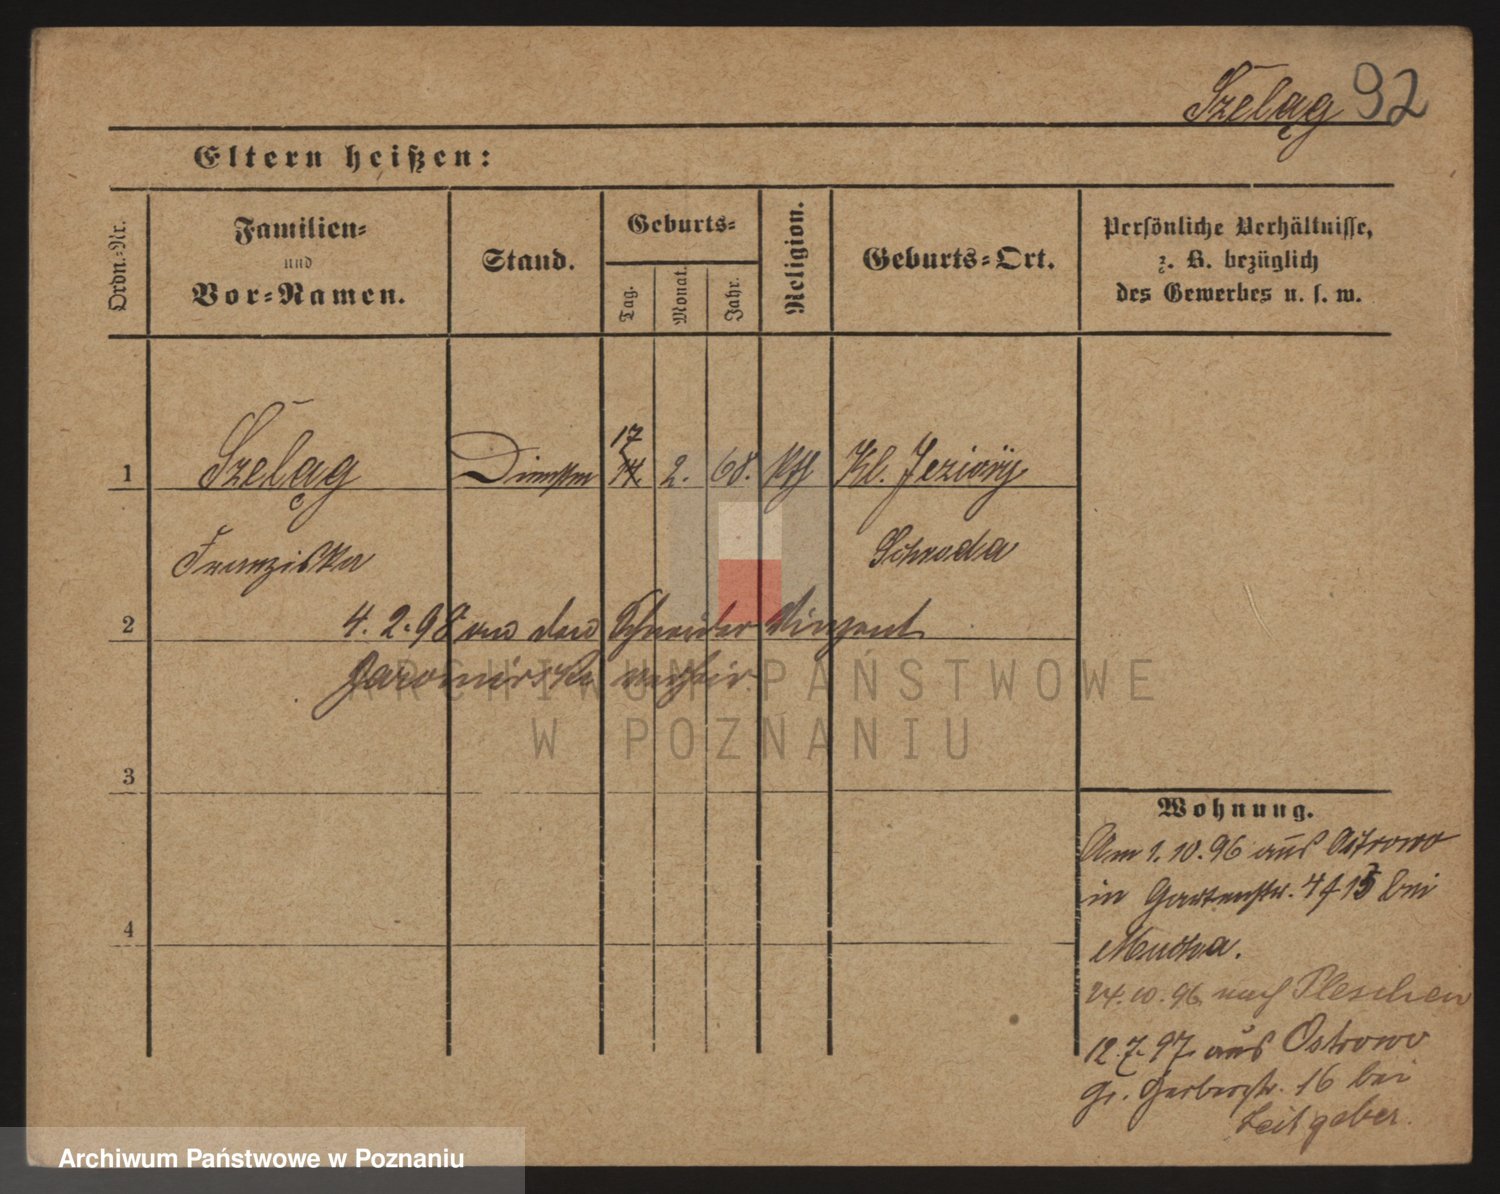 Szeląg 92
Eltern heißen:
Ordn.-Nr.
Familien-
und
Vor-Namen.
Stand.
Geburts-
Tag.
Monat.
Jahr.
Religion.
Geburts-Ort.
Persönliche Verhältnisse,
z. B. bezüglich
des Gewerbes u. s. w.
17
1 Szeląg 14. 2. 68. kth Kl. Jeziory
Franziska Schroda
2 4. 2. 98 an den Schneider Vinzent
verheir.
ARCHIWUM PAŃSTWOWE
W POZNANIU
3
4
Wohnung.
Am 1. 10. 96 aus Ostrowo
in Gartenstr. bei
24. 10. 96 nach Pleschen
12. 7. 97 aus Ostrowo
Gr. Gerberstr. 16 bei
Leitgeber.
Archiwum Państwowe w Poznaniu